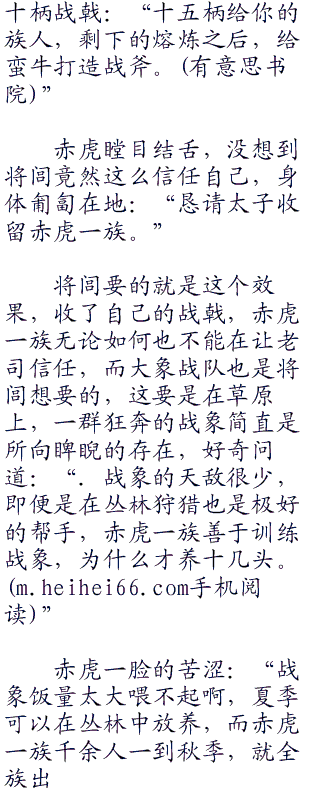 十柄战戟：“十五柄给你的
族人，剩下的熔炼之后，给
蛮牛打造战斧。(有意思书
院)”
赤虎瞠目结舌，没想到
将闾竟然这么信任自己，身
体匍匐在地：“恳请太子收
留赤虎一族。”
将闾要的就是这个效
果，收了自己的战戟，赤虎
一族无论如何也不能在让老
司信任，而大象战队也是将
闾想要的，这要是在草原
上，一群狂奔的战象简直是
所向睥睨的存在，好奇问
道：“．战象的天敌很少，
即便是在丛林狩猎也是极好
的帮手，赤虎一族善于训练
战象，为什么才养十几头。
(m.heihei66.com手机阅
读)”
赤虎一脸的苦涩：“战
象饭量太大喂不起啊，夏季
可以在丛林中放养，而赤虎
一族千余人一到秋季，就全
族出